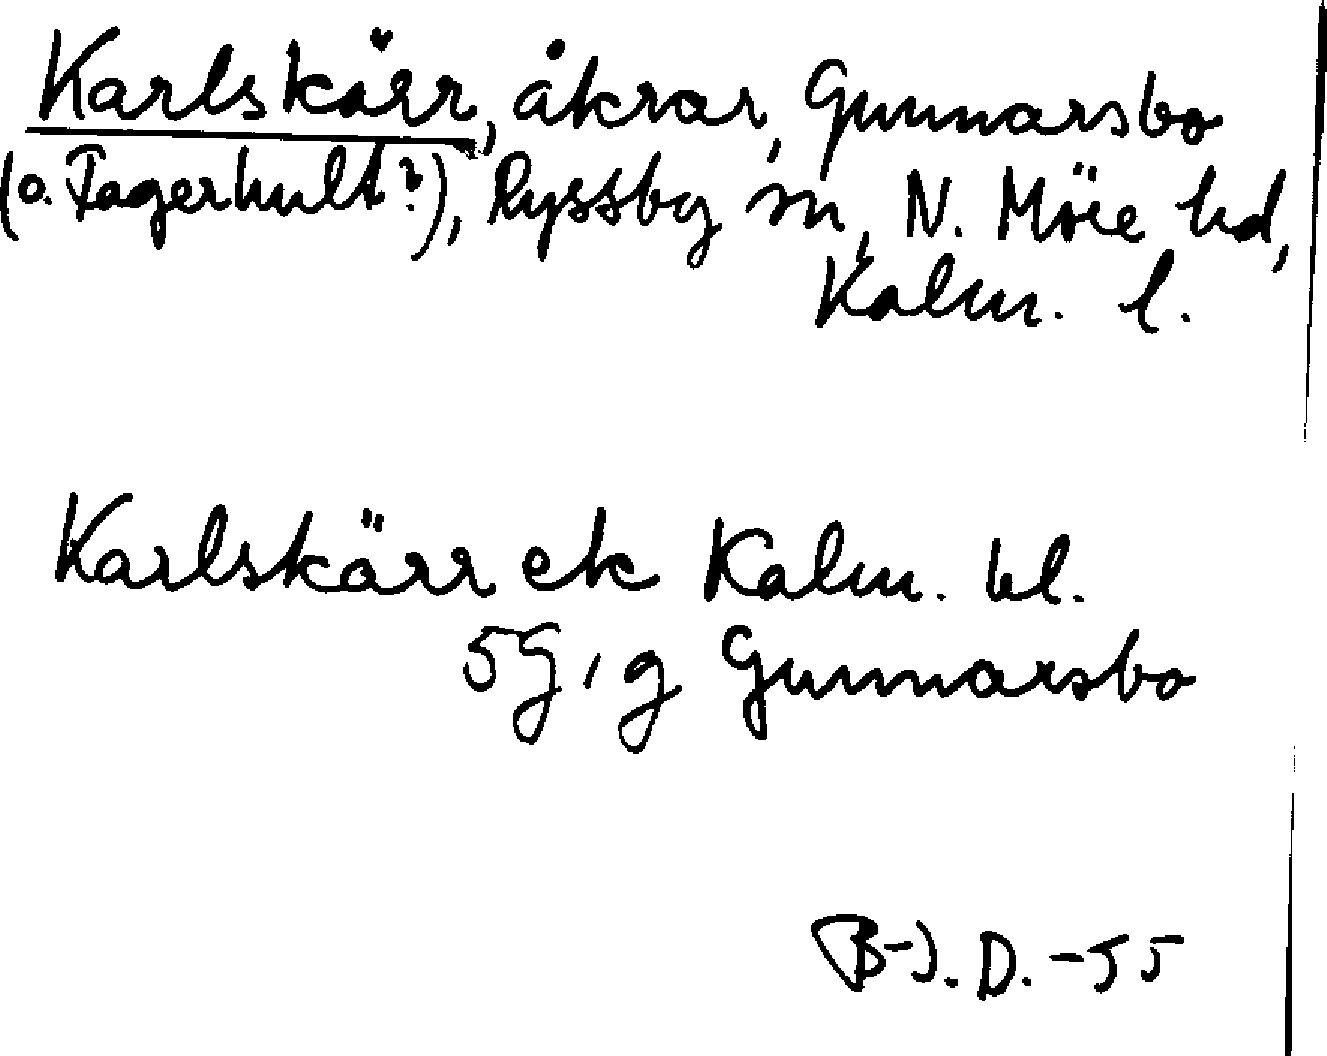 Karlskärr, åkrar, Gunnarsbo
(o. Fagerhult?), Ryssby sn, N. Möre hd,
Kalm. l.
Karlskärr ek Kalm. bl.
5G, g Gunnarsbo
B-J. D. -55